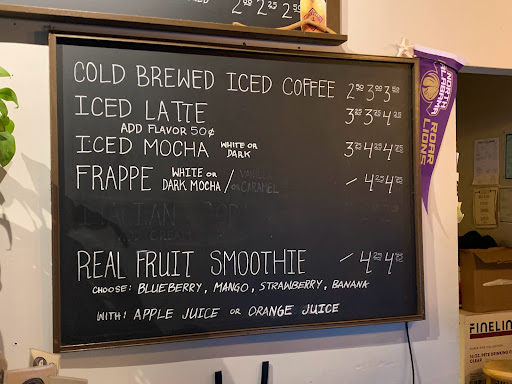 2 25 2 50
COLD BREWED ICED COFFEE 2 50 3 00 3 50
ICED LATTE 3 00 3 75 4 25
ADD FLAVOR 50¢
ICED MOCHA WHITE OR DARK 3 25 4 00 4 25
FRAPPE WHITE OR DARK MOCHA / VANILLA OR CARAMEL — 4 25 4 75
REAL FRUIT SMOOTHIE — 4 25 4 75
CHOOSE: BLUEBERRY, MANGO, STRAWBERRY, BANANA
WITH: APPLE JUICE OR ORANGE JUICE
NORTH ALABAMA
ROAR LIONS
FINELIN